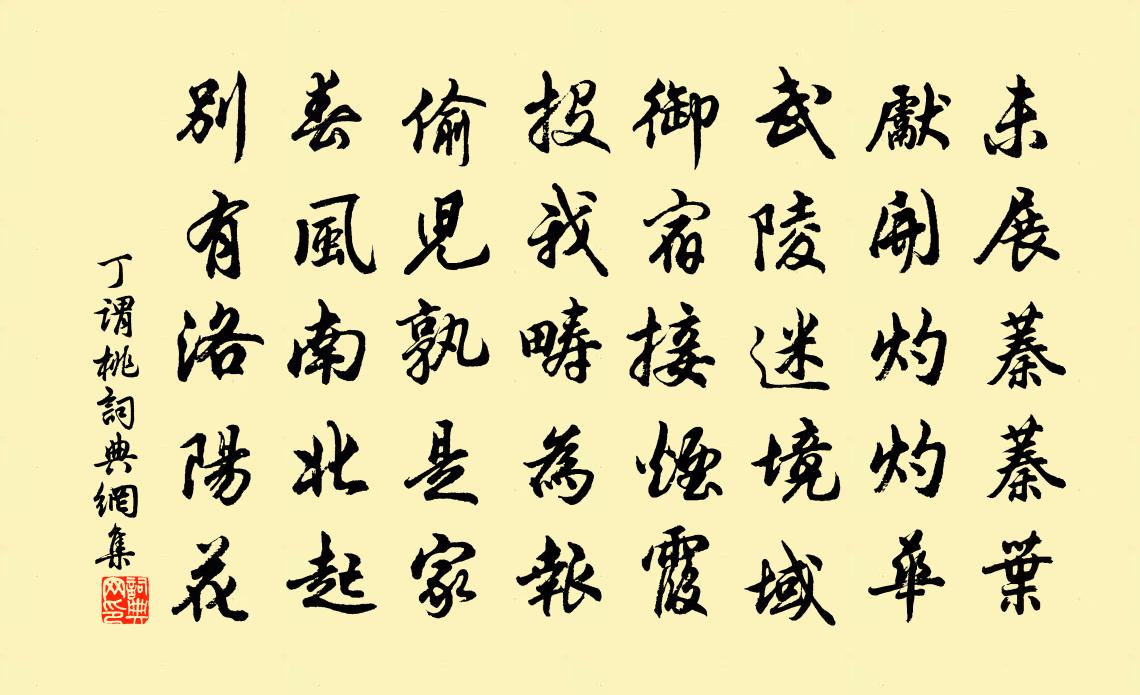 未展蓁蓁葉
獻開灼灼華
武陵迷境域
御宿接煙霞
投我疇為報
偷兒孰是家
春風南北起
別有洛陽花
丁謂桃詞典網集
詞典网印